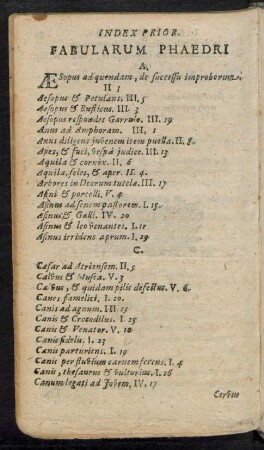 INDEX PRIOR
FABULARUM PHAEDRI
A.
Æsopus ad quendam, de successu improborum.
II 3
Aesopus & Petulans, III. 5
Aesopus & Rusticus. III. 3
Aesopus respondes Garrulo. III. 19
Anus ad Amphoram. III, 1
Anus diligens juvenem item puella. II. 2
Apes, & fuci, vespâ judice. III. 13
Aquila & cornix. II. 6
Aquila, feles, & aper. II. 4.
Arbores in Deorum tutela. III. 17
Asini & porcelli. V. 4
Asinus ad senem pastorem. I. 15
Asinus & Galli. IV. 20
Asinus & leo venantes. I. 11
Asinus irridens aprum. I. 29
C.
Cæsar ad Atriensem. II. 5
Calvus & Musca. V. 3
Calvus, & quidam pilis defectus. V. 6.
Canes famelici. I. 20.
Canis ad agnum. III. 15
Canis & Crocodilus. I. 25
Canis & Venator. V. 10
Canis fidelis. I. 23
Canis parturiens. I. 19
Canis per fluvium carnem ferens. I. 4
Canis, thesaurus & vulturius. I. 26
Canum legati ad Jovem, IV. 17
Cervus